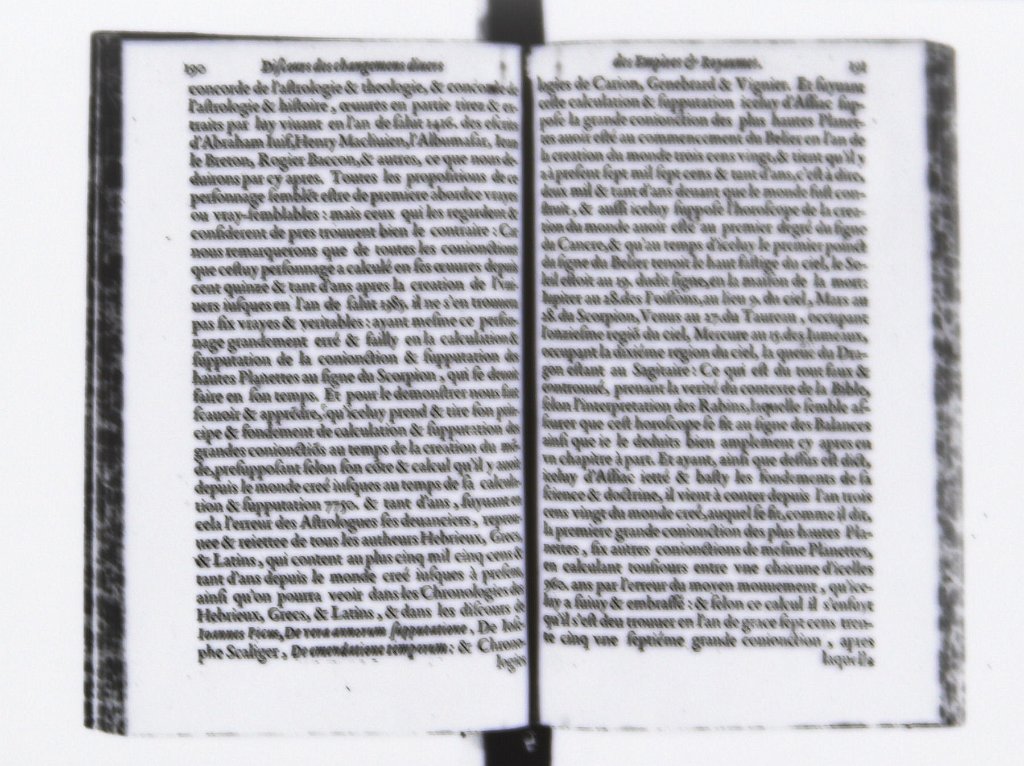 190 Discours des changemens divers
concorde de l'astrologie & theologie, & concorde de
l'astrologie & histoire, œuures en partie tirez & ex-
traits par luy viuant en l'an de salut 1416. des escrits
d'Abraham Iuif, Henry Machlinien, l'Albumasar, Iean
le Breton, Rogier Baccon, & autres, ce que nous de-
duirons par cy apres. Toutes les propositions de ce
personnage semblẽt estre de premiere abordee vrayes
ou vray-semblables : mais ceux qui les regardent &
considerent de pres trouuent bien le contraire : Car
nous remarquerons que de toutes les conionctions
que cestuy personnage a calculé en ses œuures depuis
cent quinze & tant d'ans apres la creation de l'vni-
uers iusques en l'an de salut 1385. il ne s'en trouuent
pas six vrayes & veritables : ayant mesme ce person-
nage grandement erré & failly en la calculation &
supputation de la conionction & supputation des
hautes Planettes au signe du Scorpion, qui se deuoit
faire en son temps. Et pour le demonstrer nous faut
scauoir & apprẽdre, qu'iceluy prend & tire son prin-
cipe & fondement de calculation & supputation des
grandes conionctiõs au temps de la creation du mõ-
de, presupposant selon son cõte & calcul qu'il y auoit
depuis le monde creé iusques au temps de sa calcula-
tion & supputation 7750. & tant d'ans, suyuant en
cela l'erreur des Astrologues ses deuanciers, reprou-
uee & reiettee de tous les autheurs Hebrieux, Grecs,
& Latins, qui content au plus cinq mil cinq cens &
tant d'ans depuis le monde creé iusques à present,
ainsi qu'on pourra veoir dans les Chronologies des
Hebrieux, Grecs, & Latins, & dans les discours de
Ioannes Picus, De vera annorum supputatione, De Iose-
phe Scaliger, De emendatione temporum : & Chrono-
logies
des Empires & Royaumes. 191
logies de Carion, Genebrard & Viguier. Et suyuant
celle calculation & supputation iceluy d'Alliac sup-
posé la grande conionction des plus hautes Planet-
tes auoir esté au commencement du Belier en l'an de
la creation du monde trois cens vingt, & tient qu'il y
a à present sept mil sept cens & tant d'ans, c'est à dire,
deux mil & tant d'ans deuant que le monde fust con-
struit, & aussi iceluy supposé l'horoscope de la crea-
tion du monde auoir esté au premier degré du signe
de Cancre, & qu'au temps d'iceluy le premier poinct
du signe du Belier tenoit le haut fastige du ciel, le So-
leil estoit au 19. dudit signe, en la maison de la mort:
Iupiter au 28. des Poissons, au lieu 9. du ciel, Mars au
28. du Scorpion, Venus au 27. du Taureau, occupant
l'onziesme regiõ du ciel, Mercure au 15. des Iumeaux,
occupant la dixiéme region du ciel, la queuë du Dra-
gon estant au Sagitaire : Ce qui est du tout faux &
controuué, prenant la verité du conte de la Bible,
selon l'interpretation des Rabins, laquelle semble as-
seurer que cest horoscope se fit au signe des Balances
ainsi que ie le deduits bien amplement cy apres en
vn chapitre à part. Et ayant, ainsi que dessus est dict,
iceluy d'Alliac ietté & basty les fondements de sa
science & doctrine, il vient à conter depuis l'an trois
cens vingt du monde creé, auquel se fit, comme il dit,
la premiere grande conionction des plus hautes Pla-
nettes, six autres conionctions de mesme Planettes,
en calculant tousiours entre vne chacune d'icelles
960. ans par l'erreur du moyen mouuement, qu'ice-
luy a suiuy & embrassé : & selon ce calcul il s'ensuyt
qu'il s'est deu trouuer en l'an de grace sept cens tren-
te cinq vne septiéme grande conionction, apres
laquelle